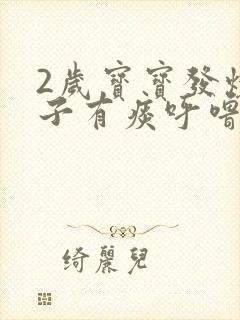 2歲寶寶發
子有痰呼嚕
綺麗兒